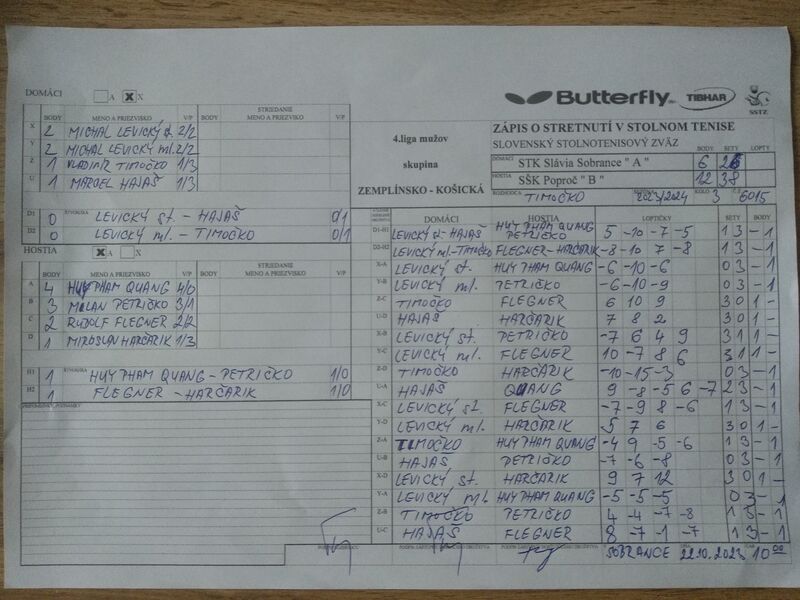 DOMÁCI A X
BODY MENO A PRIEZVISKO V/P BODY STRIEDANIE MENO A PRIEZVISKO V/P
X 2 MICHAL LEVICKÝ st. 2/2
Y 2 MICHAL LEVICKÝ ml. 2/2
Z 1 VLADIMÍR TIMOČKO 1/3
U 1 MARCEL HAJAŠ 1/3
D1 0 ŠTVORHRA LEVICKÝ st. - HAJAŠ 0/1
D2 0 LEVICKÝ ml. - TIMOČKO 0/1
HOSTIA A X
BODY MENO A PRIEZVISKO V/P BODY STRIEDANIE MENO A PRIEZVISKO V/P
A 4 HUY PHAM QUANG 4/0
B 3 MILAN PETRIČKO 3/1
C 2 RUDOLF FLEGNER 2/2
D 1 MIROSLAV HARČARIK 1/3
H1 1 ŠTVORHRA HUY PHAM QUANG - PETRIČKO 1/0
H2 1 FLEGNER - HARČARIK 1/0
PRIPOMIENKY, POZNÁMKY
Butterfly TIBHAR SSTZ
4.liga mužov
skupina
ZEMPLÍNSKO - KOŠICKÁ
ZÁPIS O STRETNUTÍ V STOLNOM TENISE
SLOVENSKÝ STOLNOTENISOVÝ ZVÄZ BODY SETY LOPTY
DOMÁCI STK Slávia Sobrance " A " 6 26
HOSTIA SŠK Poproč " B " 12 38
ROZHODCA TIMOČKO 2023/2024 KOLO 3 Č. 6015
DOMÁCI HOSTIA LOPTIČKY SETY BODY
D1-H1 LEVICKÝ st-HAJAŠ HUY PHAM QUANG PETRIČKO 5 -10 -7 -5 1 3 - 1
D2-H2 LEVICKÝ ml.-TIMOČKO FLEGNER-HARČARIK -8 -10 7 -8 1 3 - 1
X-A LEVICKÝ st. HUY PHAM QUANG -6 -10 -6 0 3 - 1
Y-B LEVICKÝ ml. PETRIČKO -6 -10 -9 0 3 - 1
Z-C TIMOČKO FLEGNER 6 10 9 3 0 1 -
U-D HAJAŠ HARČARIK 7 8 2 3 0 1 -
X-B LEVICKÝ st. PETRIČKO -7 6 4 9 3 1 1 -
Y-C LEVICKÝ ml. FLEGNER 10 -7 8 6 3 1 1 -
Z-D TIMOČKO HARČARIK -10 -15 -3 0 3 - 1
U-A HAJAŠ QUANG 9 -8 -5 6 -7 2 3 - 1
X-C LEVICKÝ st. FLEGNER -7 -9 8 -6 1 3 - 1
Y-D LEVICKÝ ml. HARČARIK 5 7 6 3 0 1 -
Z-A TIMOČKO HUY PHAM QUANG -4 9 -5 -6 1 3 - 1
U-B HAJAŠ PETRIČKO -7 -6 -8 0 3 - 1
X-D LEVICKÝ st. HARČARIK 9 7 12 3 0 1 -
Y-A LEVICKÝ ml. HUY PHAM QUANG -5 -5 -5 0 3 - 1
Z-B TIMOČKO PETRIČKO 4 -4 -7 -8 1 3 - 1
U-C HAJAŠ FLEGNER 8 -7 -1 -7 1 3 - 1
SOBRANCE 22.10.2023 10 00